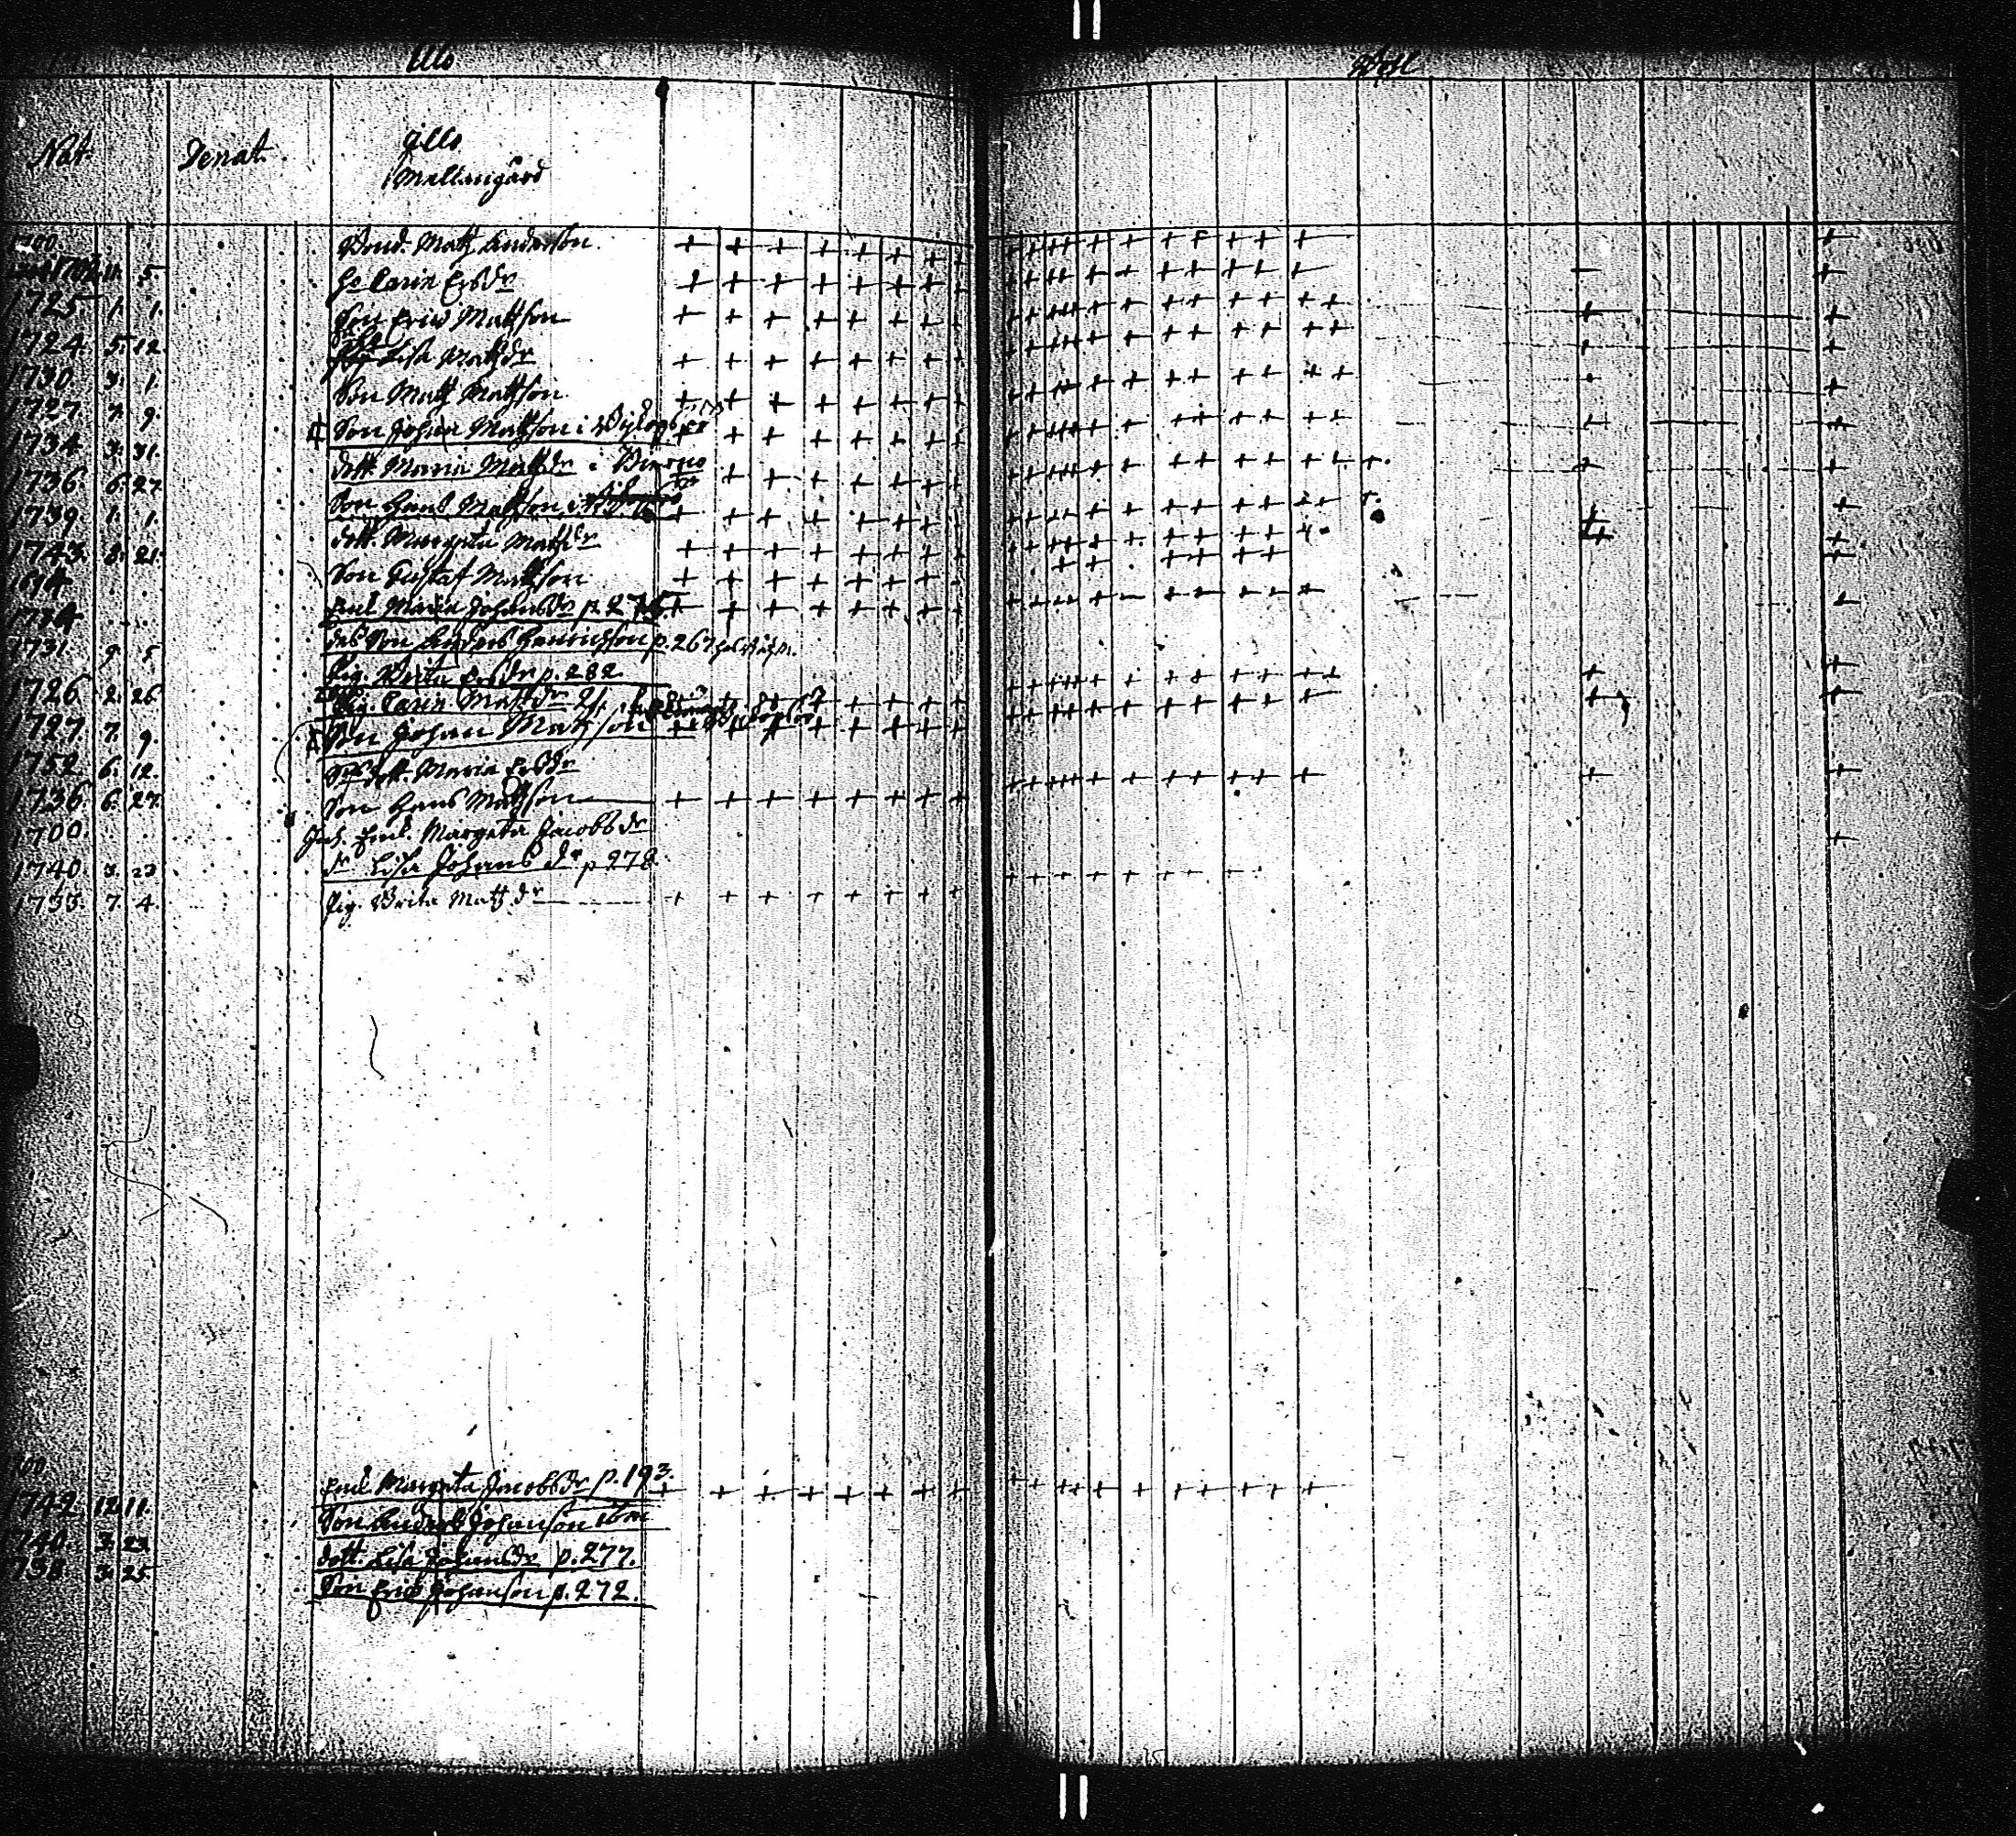 Illo
Nat. Denat. Illo
Mellangård
1700 Bond. Matts Andersson
1701. 11. 5. H:o Carin Ersdr
1725 1. 1. Son Eric Mattsson
1724. 5. 12. Lisa Mattsdr
1730. 3. 1. Son Matts Mattsson
1727. 7. 9. Son Johan Mattsson i
1734 3. 31. dott. Maria Mattsdr i
1736. 6. 27. Son Hans Mattsson i
1739 1. 1. dott. Margeta Mattsdr
1743. 8. 21. Son Gustaf Mattsson
1694 Enk. Maria Johansdr p. 275.
1734 des Son Anders Henricsson p. 267
1731. 9. 5 Pig. Brita Ersdr p. 282.
1726 2. 26 Pig. Carin Mattsdr
1727. 7. 9. Son Johan Mattsson
1752 6. 12. dott. Maria Ersdr
1736. 6. 27. Son Hans Mattsson
1700. Inh. Enk. Margeta Jacobsdr
1740. 3. 23 dr Lisa Johansdr p 278
1753. 7. 4. Pig. Brita Mattsdr
00 Enk. Margeta Jacobsdr p. 193.
1742. 12. 11. Son Anders Johansson
740. 3. 23. dott. Lisa Johansdr p. 277.
738 3. 25. Son Eric Johansson p. 272.